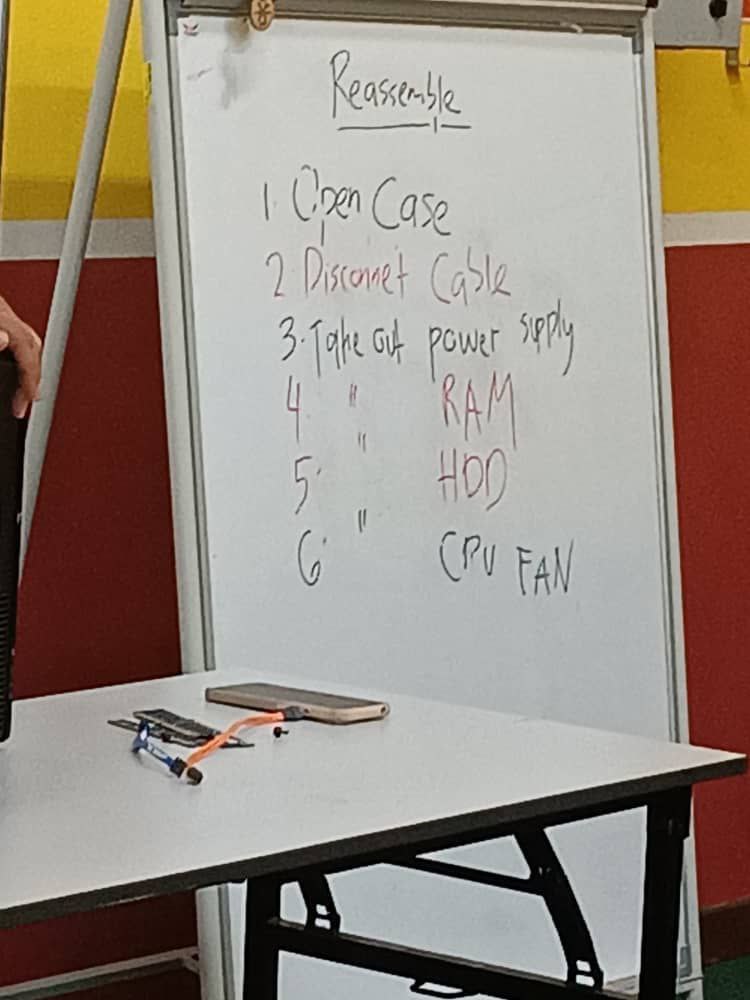 Reassemble
1. Open Case
2. Disconnet Cable
3. Take out power supply
4. " RAM
5. " HDD
6. " CPU FAN